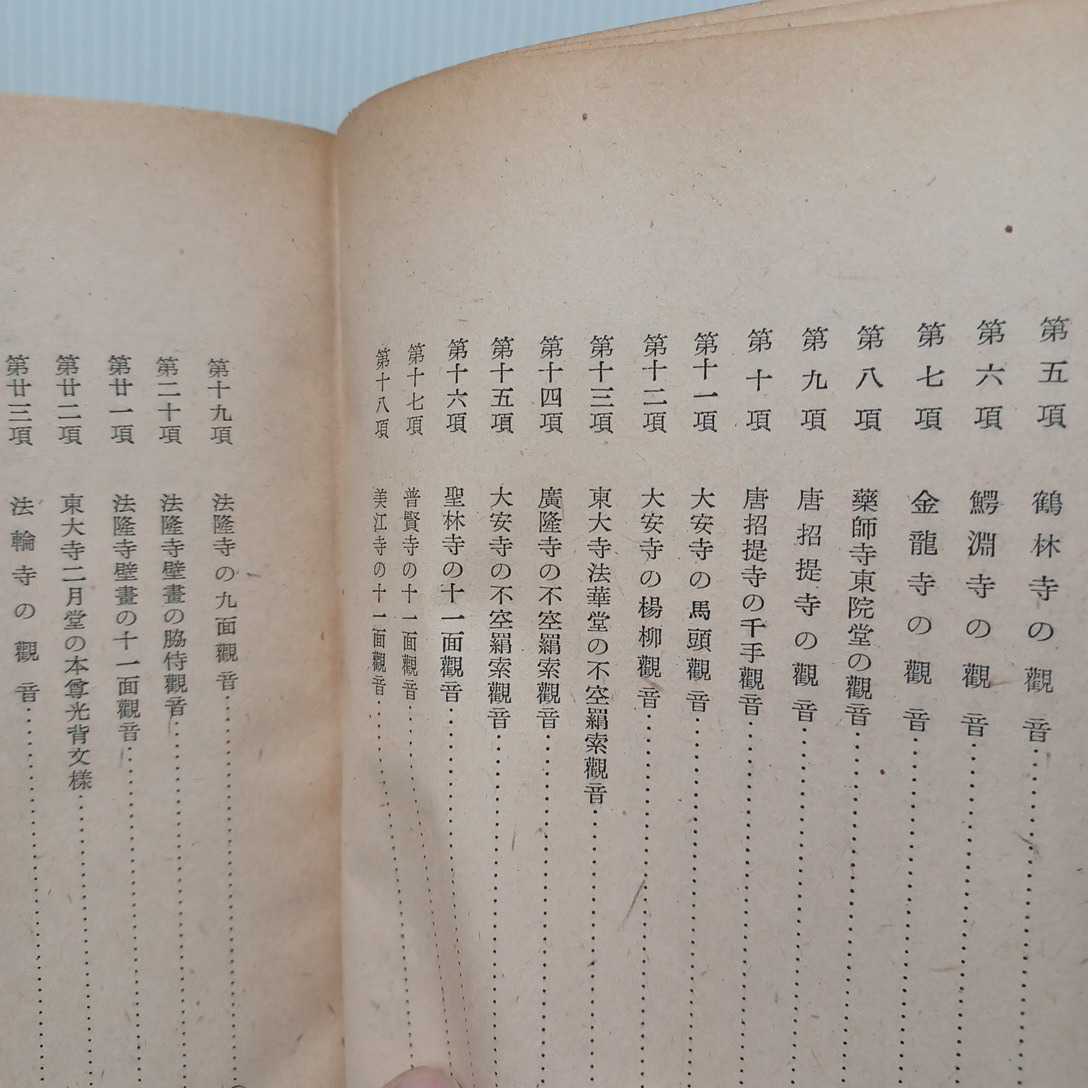 第五項 鶴林寺の觀音
第六項 鰐淵寺の觀音
第七項 金龍寺の觀音
第八項 藥師寺東院堂の觀音
第九項 唐招提寺の觀音
第十項 唐招提寺の千手觀音
第十一項 大安寺の馬頭觀音
第十二項 大安寺の楊柳觀音
第十三項 東大寺法華堂の不空羂索觀音
第十四項 廣隆寺の不空羂索觀音
第十五項 大安寺の不空羂索觀音
第十六項 聖林寺の十一面觀音
第十七項 普賢寺の十一面觀音
第十八項 美江寺の十一面觀音
第十九項 法隆寺の九面觀音
第二十項 法隆寺壁畫の脇侍觀音
第廿一項 法隆寺壁畫の十一面觀音
第廿二項 東大寺二月堂の本尊光背文樣
第廿三項 法輪寺の觀音